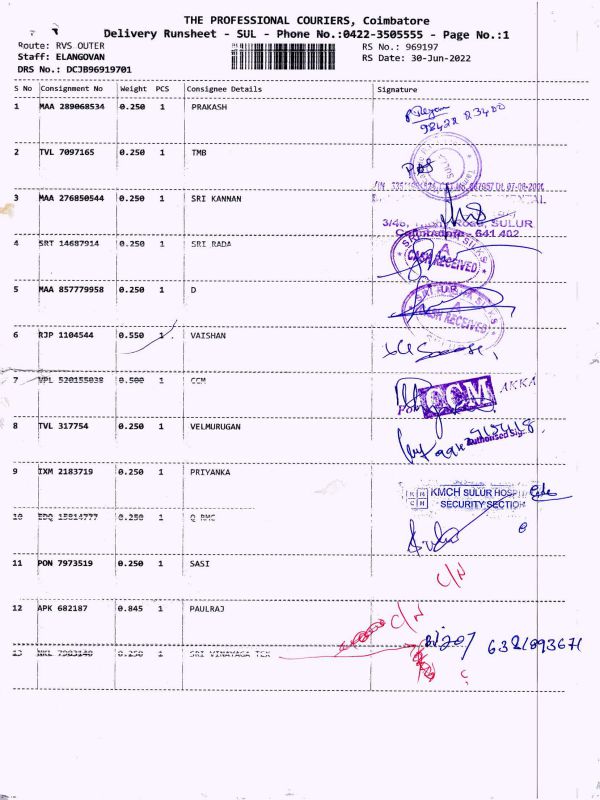 THE PROFESSIONAL COURIERS, Coimbatore
Delivery Runsheet - SUL - Phone No.:0422-3505555 - Page No.:1
Route: RVS OUTER
RS No.: 969197
Staff: ELANGOVAN
RS Date: 30-Jun-2022
DRS No.: DCJB96919701
S No Consignment No Weight PCS Consignee Details Signature
1 MAA 289068534 0.250 1 PRAKASH
2 TVL 7097165 0.250 1 TMB
3 MAA 276850544 0.250 1 SRI KANNAN
SULUR
Coimbatore - 641 402
4 SRT 14687914 0.250 1 SRI RADA
CASH RECEIVED
5 MAA 857779958 0.250 1 D
CASH RECEIVED
6 RJP 1104544 0.550 1 VAISHAN
7 VPL 520155038 0.500 1 CCM
CCM
8 TVL 317754 0.250 1 VELMURUGAN
Authorised Sig.
9 TXM 2183719 0.250 1 PRIYANKA
KMCH SULUR
SECURITY SECTION
10 EDQ 15814777 0.250 1 Q RMC
11 PON 7973519 0.250 1 SASI
C/N
12 APK 682187 0.845 1 PAULRAJ
C/N
13 NKL 7983140 0.250 1 SRI VINAYAGA TEX